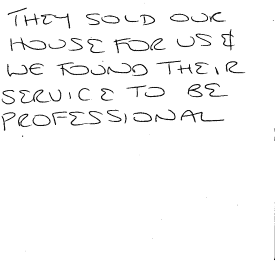 THEY SOLD OUR
HOUSE FOR US &
WE FOUND THEIR
SERVICE TO BE
PROFESSIONAL